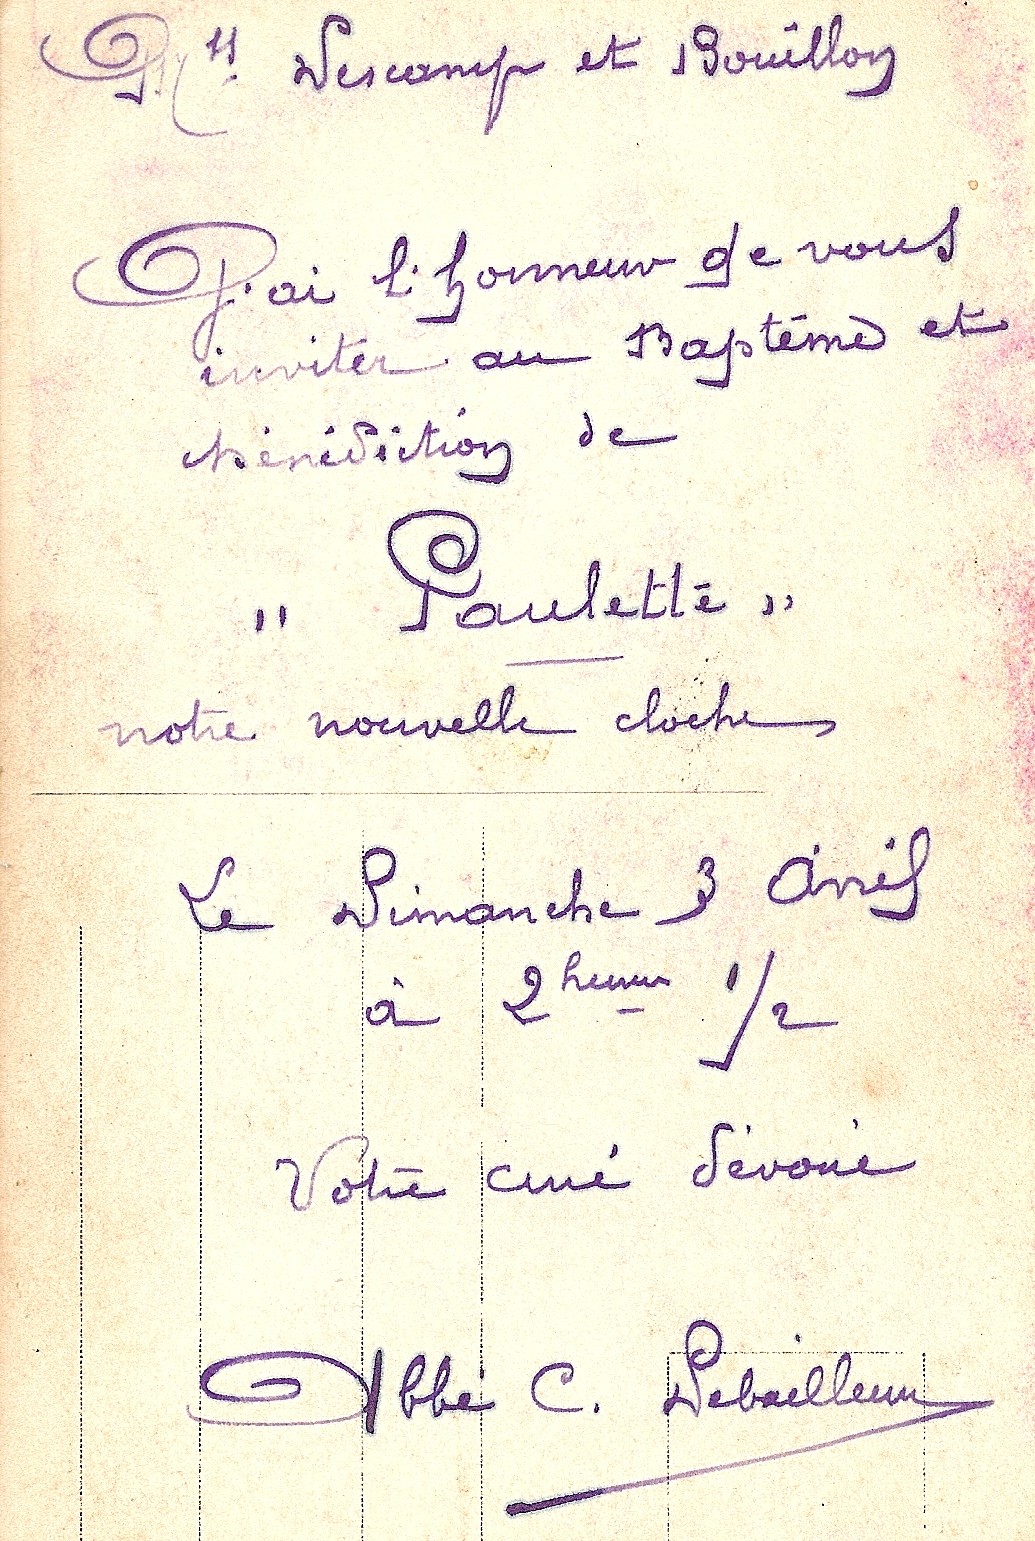 Mrs. Descamp et Bouillon
J'ai l'honneur de vous
inviter au Baptême et
bénédiction de
" Paulette "
notre nouvelle cloche
Le Dimanche 3 Avril
à 2 heures 1/2
Votre curé dévoué
Abbé C. Debailleux